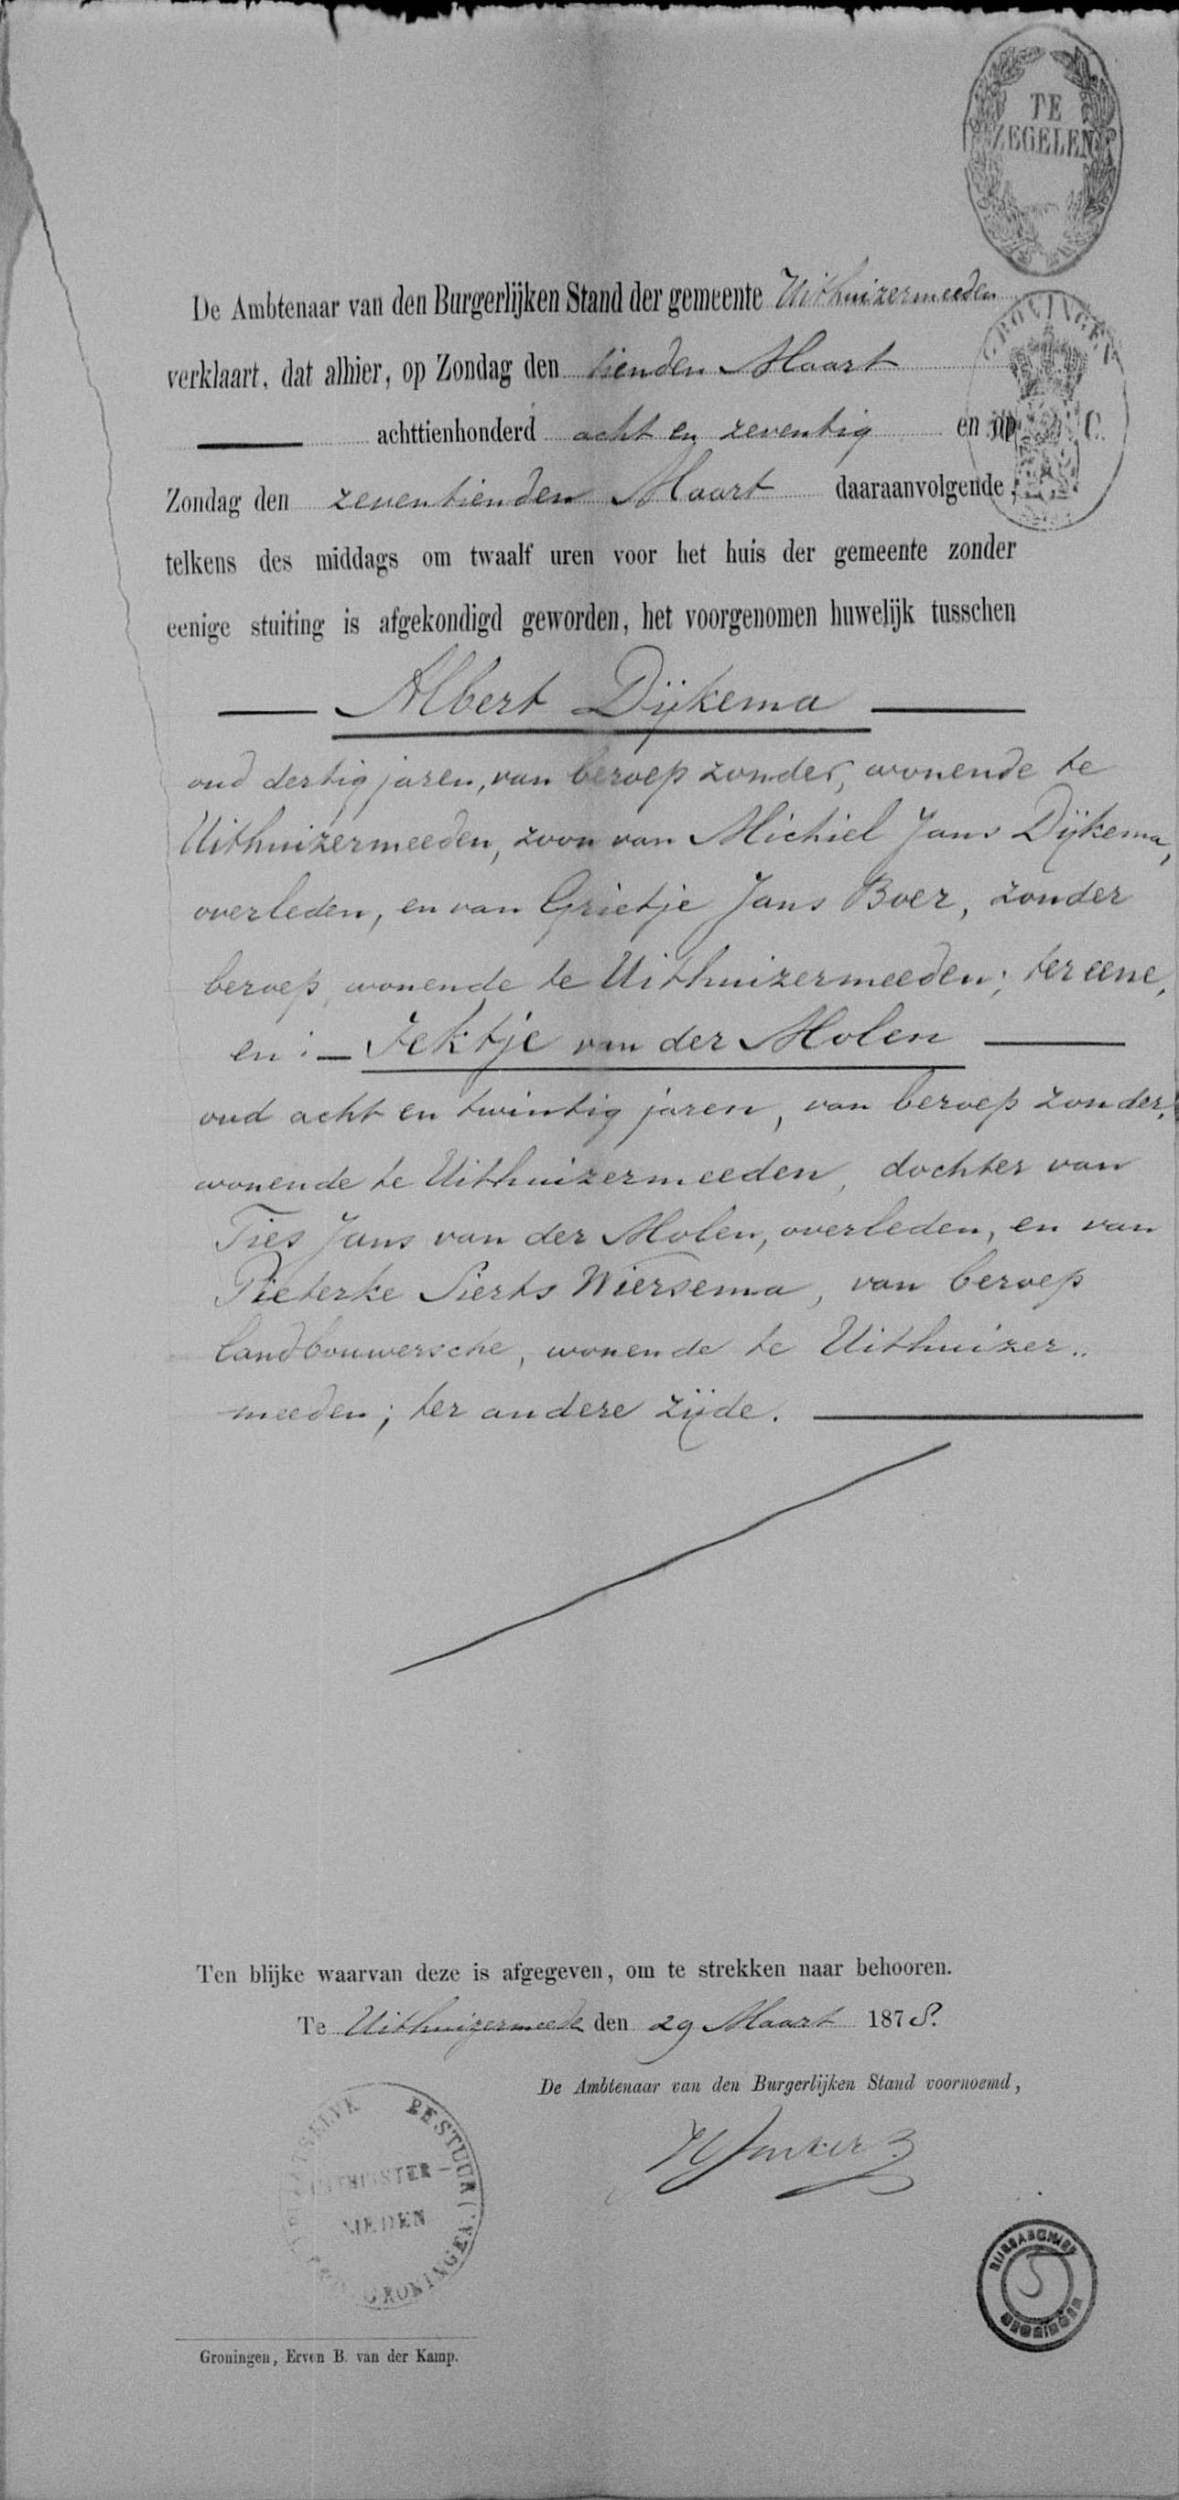 TE
ZEGELEN
De Ambtenaar van den Burgerlijken Stand der gemeente Uithuizermeeden
GRONINGEN
verklaart, dat alhier, op Zondag den tienden Maart
achttienhonderd acht en zeventig en op
C.
Zondag den zeventienden Maart daaraanvolgende,
telkens des middags om twaalf uren voor het huis der gemeente zonder
eenige stuiting is afgekondigd geworden, het voorgenomen huwelijk tusschen
Albert Dijkema
oud dertig jaren, van beroep zonder, wonende te
Uithuizermeeden, zoon van Michiel Jans Dijkema,
overleden, en van Grietje Jans Boer, zonder
beroep, wonende te Uithuizermeeden; ter eene,
en: Jektje van der Molen
oud acht en twintig jaren, van beroep zonder,
wonende te Uithuizermeeden, dochter van
Ties Jans van der Molen, overleden, en van
Pieterke Sierts Wiersema, van beroep
landbouwersche, wonende te Uithuizer„
meeden; ter andere zijde.
Ten blijke waarvan deze is afgegeven, om te strekken naar behooren.
Te Uithuizermeede den 29 Maart 1878.
De Ambtenaar van den Burgerlijken Stand voornoemd,
BESTUUR
MEDEN
GRONINGEN
RIJKSARCHIEF
GRONINGEN
Groningen, Erven B. van der Kamp.